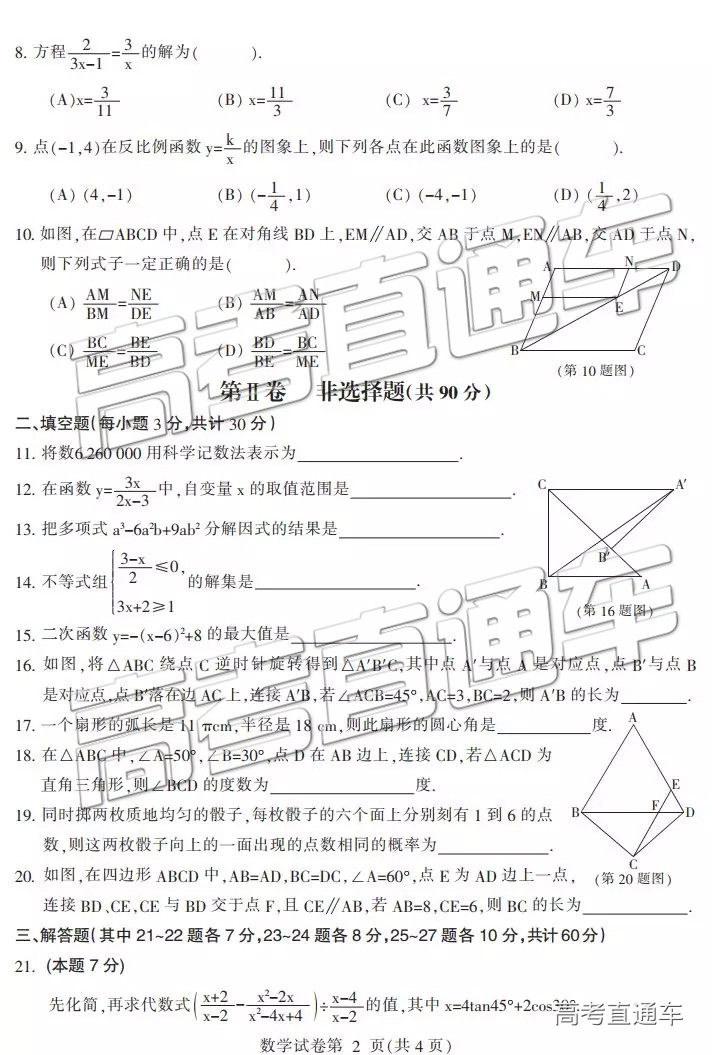 8. 方程2/(3x-1)=3/x的解为(　　).
(A)x=3/11　(B) x=11/3　(C) x=3/7　(D) x=7/3
9. 点(-1,4)在反比例函数 y=k/x的图象上,则下列各点在此函数图象上的是(　　).
(A) (4,-1)　(B) (-1/4,1)　(C) (-4,-1)　(D) (1/4,2)
10. 如图,在▱ABCD 中,点 E 在对角线 BD 上,EM∥AD,交 AB 于点 M,EN∥AB,交 AD 于点 N,
则下列式子一定正确的是(　　).
(A) AM/BM=NE/DE　(B) AM/AB=AN/AD
(C) BC/ME=BE/BD　(D) BD/BE=BC/ME
A N D
M E
B C
(第 10 题图)
第Ⅱ卷　非选择题(共 90 分)
二、填空题(每小题 3 分,共计 30 分)
11. 将数6 260 000 用科学记数法表示为______.
12. 在函数 y=3x/(2x-3)中,自变量 x 的取值范围是______.
13. 把多项式 a³-6a²b+9ab² 分解因式的结果是______.
14. 不等式组{(3-x)/2≤0, 3x+2≥1 的解集是______.
C A′
B′
B A
(第 16 题图)
15. 二次函数 y=-(x-6)²+8 的最大值是______.
16. 如图,将△ABC 绕点 C 逆时针旋转得到△A′B′C,其中点 A′与点 A 是对应点,点 B′与点 B
是对应点,点 B′落在边 AC 上,连接 A′B,若∠ACB=45°,AC=3,BC=2,则 A′B 的长为______.
17. 一个扇形的弧长是 11 πcm,半径是 18 cm,则此扇形的圆心角是______度.
18. 在△ABC 中,∠A=50°,∠B=30°,点 D 在 AB 边上,连接 CD,若△ACD 为
直角三角形,则∠BCD 的度数为______度.
19. 同时掷两枚质地均匀的骰子,每枚骰子的六个面上分别刻有 1 到 6 的点
数,则这两枚骰子向上的一面出现的点数相同的概率为______.
A
E
B F D
C
(第 20 题图)
20. 如图,在四边形 ABCD 中,AB=AD,BC=DC,∠A=60°,点 E 为 AD 边上一点,
连接 BD、CE,CE 与 BD 交于点 F,且 CE∥AB,若 AB=8,CE=6,则 BC 的长为______.
三、解答题(其中 21~22 题各 7 分,23~24 题各 8 分,25~27 题各 10 分,共计60 分)
21. (本题 7 分)
先化简,再求代数式((x+2)/(x-2)-(x²-2x)/(x²-4x+4))÷(x-4)/(x-2)的值,其中 x=4tan45°+2cos30°
数学试卷第 2 页(共 4 页)
高考直通车
高考直通车
高考直通车